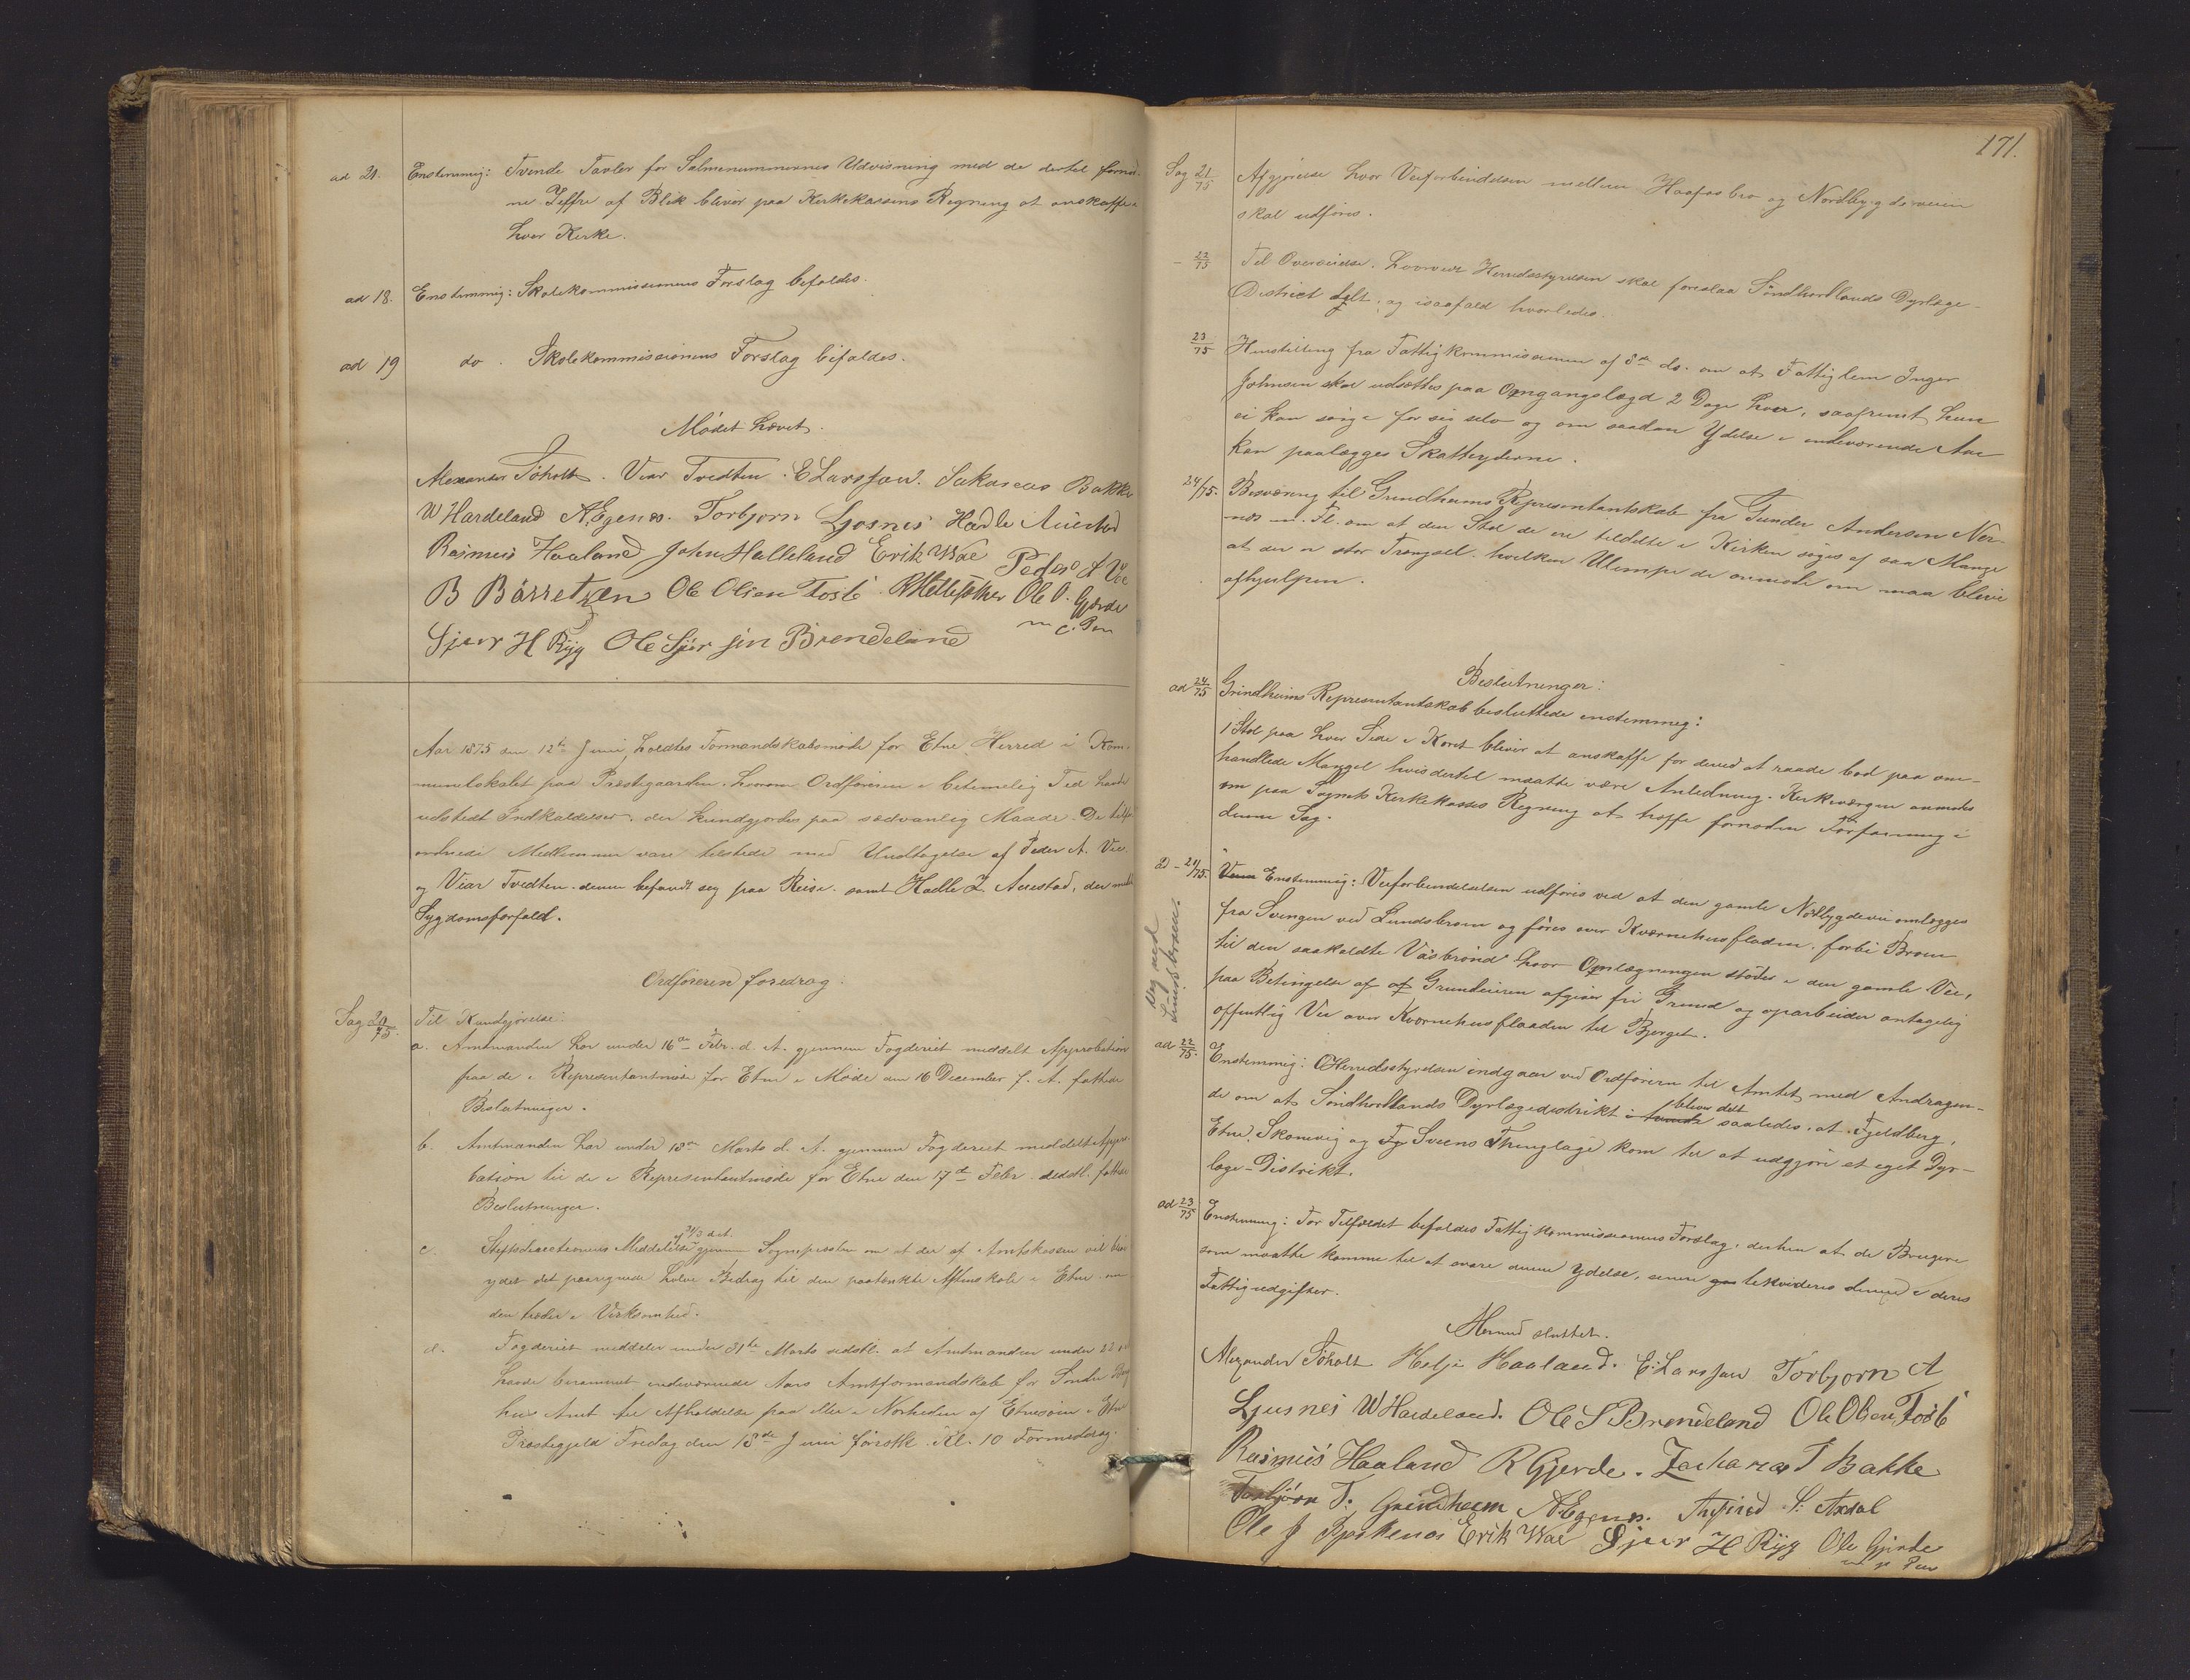 ad 21. Enstemmig: Tvende Tavler for Salmenummernes Udvisning med de dertil fornød-
ne Ziffre af Blik bliver paa Kirkekassens Regning at anskaffe
hver Kirke.
ad 18. Enstemmig: Skolekommissionens Forslag bifaldes.
ad 19 do. Skolekommissionens Forslag bifaldes.
Mødet hævet.
Alexander Søholt. Viar Tvedten. E Larssen. Sakarias Bakke
W Hardeland A. Egenes. Torbjørn Ljosnes Hadle Auestad
Rasmus Haaland John Halleland Erik Wae Peder A Vee
B Børretzen Ole Olsen Tosse R Mellesether Ole O. Gjerde
m. p. Pen
Sjur H Ryg Ole Sjursen Brendeland
Aar 1875 den 12te Juni holdtes Formandskabsmøde for Etne Herred i Kom-
munelokalet paa Prestegaarden, hvorom Ordføreren i betimelig Tid havde
udstedt Indkaldelser, der kundgjordes paa sædvanlig Maade. De tilfor-
ordnede Medlemmer vare tilstede med Undtagelse af Peder A. Vee
og Viar Tvedten, denne befandt sig paa Reise, samt Hadle L. Auestad, der meldte
Sygdomsforfald.
Ordføreren foredrog:
Sag 20/75. Til Kundgjørelse:
a. Amtmanden har under 16de Febr. d. A. gjennem Fogderiet meddelt Approbation
paa de i Representantmøde for Etne i Møde den 16 December f. A. fattede
Beslutninger.
b. Amtmanden har under 13de Marts d. A. gjennem Fogderiet meddelt Appro-
bation til de i Representantmøde for Etne den 17de Febr. sidstl. fattede
Beslutninger.
c. Stiftsdirectionens Meddelelse af 31/3 d.A. gjennem Sognepresten om at der af Amtskassen vil blive
ydet det paaregnede halve Bidrag til den paatænkte Aftenskole i Etne naar
den træder i Virksomhed.
d. Fogderiet meddeler under 31te Marts sidstl. at Amtmanden under 22
havde berammet indeværende Aars Amtformandskab for Søndre Berg-
hus Amt til Afholdelse paa eller i Nærheden af Etnesøen i Etne
Præstegjeld Fredag den 18de Juni førstk. Kl. 10 Formiddag.
171.
Sag 21/75 Afgjørelse hvor Veiforbindelsen mellem Haafosbro og Nordbygdsveien
skal udføres.
- 22/75 Til Overveielse, hvorvidt Herredsstyrelsen skal foreslaa Søndhordlands Dyrlæge-
District delt, og isaafald hvorledes.
23/75 Henstilling fra Fattigkommissionen af 8de ds. om at Fattiglem Inger
Johnsen skal udsættes paa Omgangslægd 2 Dage hver, saafremt hun
ei kan sørge for sig selv og om saadan Ydelse i indeværende Aar
kan paalægges Skatteyderne.
24/75. Besværing til Grindheims Representantskab fra Gunder Andersen Nor-
næs m. Fl. om at den Stol de ere tildelte i Kirken søges af saa Mange
at der er stor Trængsel, hvilken Ulempe de anmode om maa blive
afhjulpen.
Beslutninger:
ad 24/75 Grindheims Representantskab besluttede enstemmig:
1 Stol paa hver Side i Koret bliver at anskaffe for derved at raade bod paa om-
handlede Mangel hvis dertil maatte være Anledning. Kirkeværgen anmodes
om paa Sognets Kirkekasses Regning at træffe fornøden Forføining i
denne Sag.
ad - 21/75. Enstemmig: Veiforbindelsen udføres ved at den gamle Nordbygdsvei omlægges
fra Svingen ved Lundsbroen og føres over Kvernehusfladen, forbi Broen
til den saakaldte Vasbrønd hvor Omlægningen støder i den gamle Vei,
paa Betingelse af at Grundeieren afgiver fri Grund og oparbeider antagelig
offentlig Vei over Kvernehusfladen til Bjerget.
Vei ved
Lundsbroen.
ad 22/75. Enstemmig: Herredsstyrelsen indgaar ved Ordføreren til Amtet med Andragen-
de om at Søndhordlands Dyrlægedistrikt bliver delt saaledes, at Fjeldberg,
Etne, Skonevig og Sveens Thinglage kom til at udgjøre et eget Dyr-
læge-Distrikt.
ad 23/75 Enstemmig: For Tilfældet bifaldes Fattigkommissionens Forslag, derhen at de Brugere
som maatte komme til at svare denne Ydelse, senere likvideres denne i deres
Fattigudgifter.
Hermed sluttet.
Alexander Søholt Helje Haaland. E. Larssen Torbjørn A
Ljusnes W Hardeland. Ole S Brendeland Ole Olsen Tosse
Rasmus Haaland R Gjerde. Zacharias T Bakke
Torbjørn T. Grindheim A. Egenes. S. Axdal
Ole J Bjoskenes Erik Wae Sjur H Ryg Ole Gjerde
m p Pen